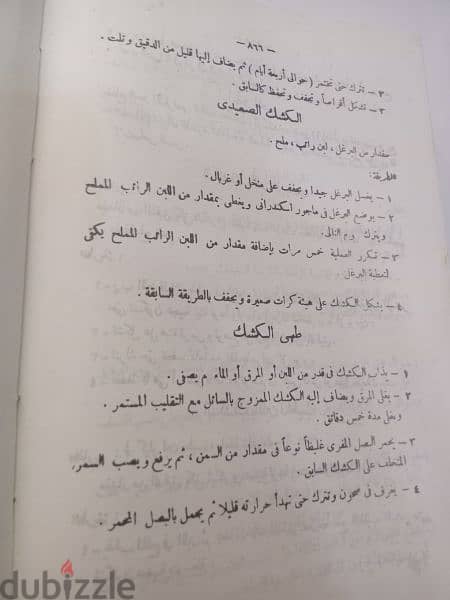 — ٨٦٦ —
٣ – تترك حتى تختمر (حوالى أربعة أيام) ثم يضاف إليها قليل من الدقيق وتلت .
٣ – تشكل أقراصاً وتجفف وتحفظ كالسابق .
الكشك الصعيدى
مقدار من البرغل ، لبن رائب ، ملح .
الطريقة :
١ – يغسل البرغل جيدا ويجفف على منخل أو غربال .
٢ – يوضع البرغل فى ماجور اسكندرانى ويغطى بمقدار من اللبن الرائب المملح
ويترك لليوم التالى .
٣ – تتكرر العملية خمس مرات بإضافة مقدار من اللبن الرائب المملح يكفى
لتغطية البرغل .
٤ – يشكل الكشك على هيئة كرات صغيرة ويجفف بالطريقة السابقة .
طهى الكشك
١ – يذاب الكشك فى قدر من اللبن أو المرق أو الماء ثم يصفى .
٢ – يغلى المرق ويضاف إليه الكشك الممزوج بالسائل مع التقليب المستمر .
ويغلى مدة خمس دقائق .
٣ – يحمر البصل المفرى غليظاً نوعاً فى مقدار من السمن ، ثم يرفع ويصب السمن
المتخلف على الكشك السابق .
٤ – يغرف فى صحون وتترك حتى تهدأ حرارته قليلا ثم يجمل بالبصل المحمر .
dubizzle